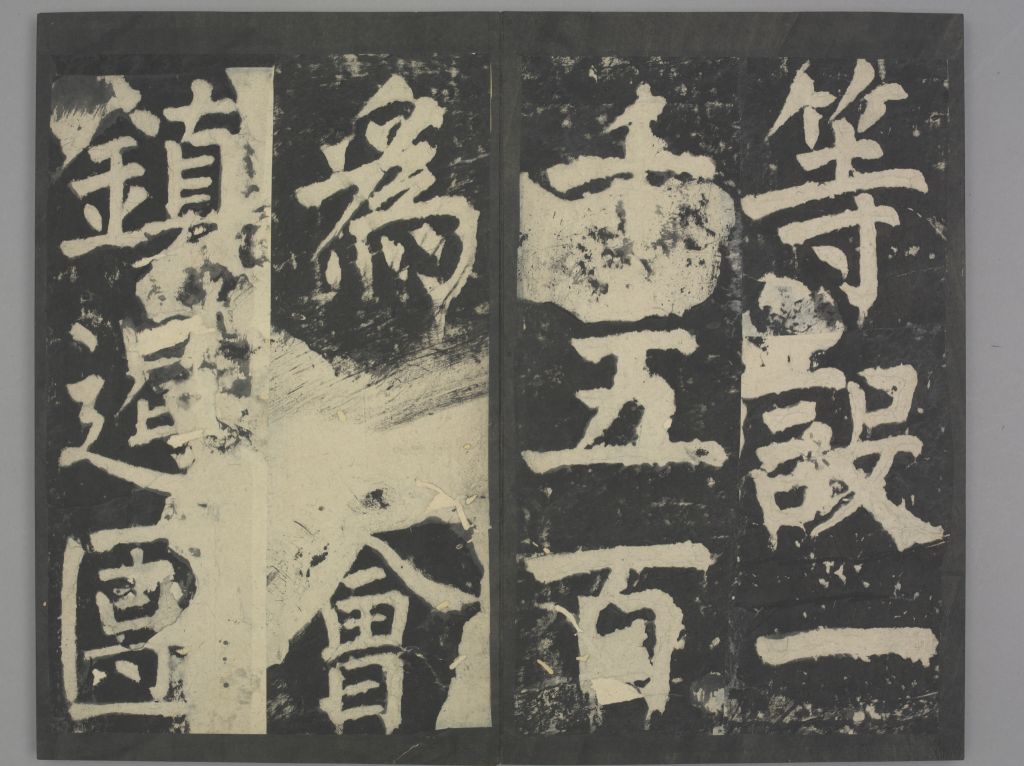 等設一
千五百
為會
鎮遏團